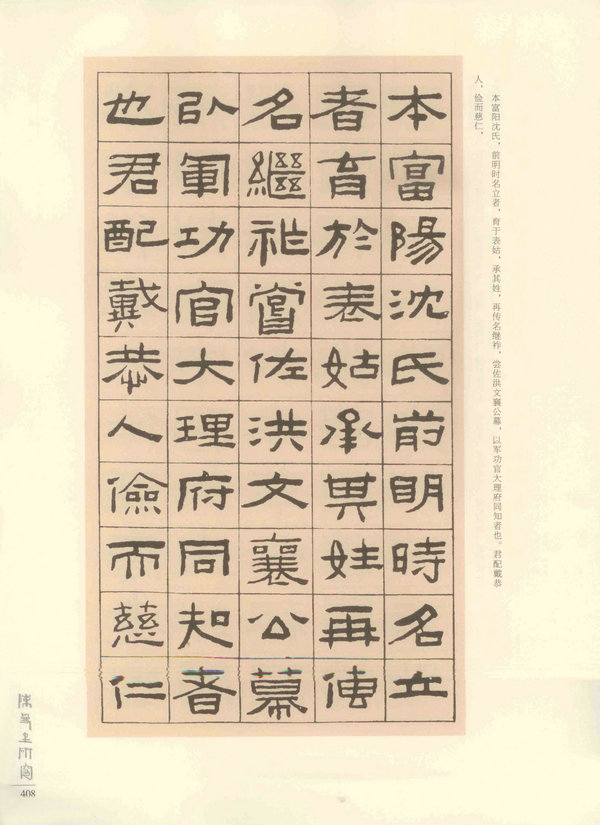 本富陽沈氏前明時名立
者育於表姑承其姓再傳
名繼祚嘗佐洪文襄公幕
㠯軍功官大理府同知者
也君配戴恭人儉而慈仁
本富阳沈氏，前明时名立者，育于表姑，承其姓，再传名继祚，尝佐洪文襄公幕，以军功官大理府同知者也。君配戴恭
人，俭而慈仁，
408